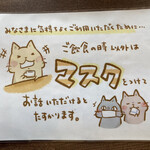 みなさまに気持ちよくご利用いただくために…
ご飲食の時以外は
マスクをつけて
お話いただけると
たすかります。